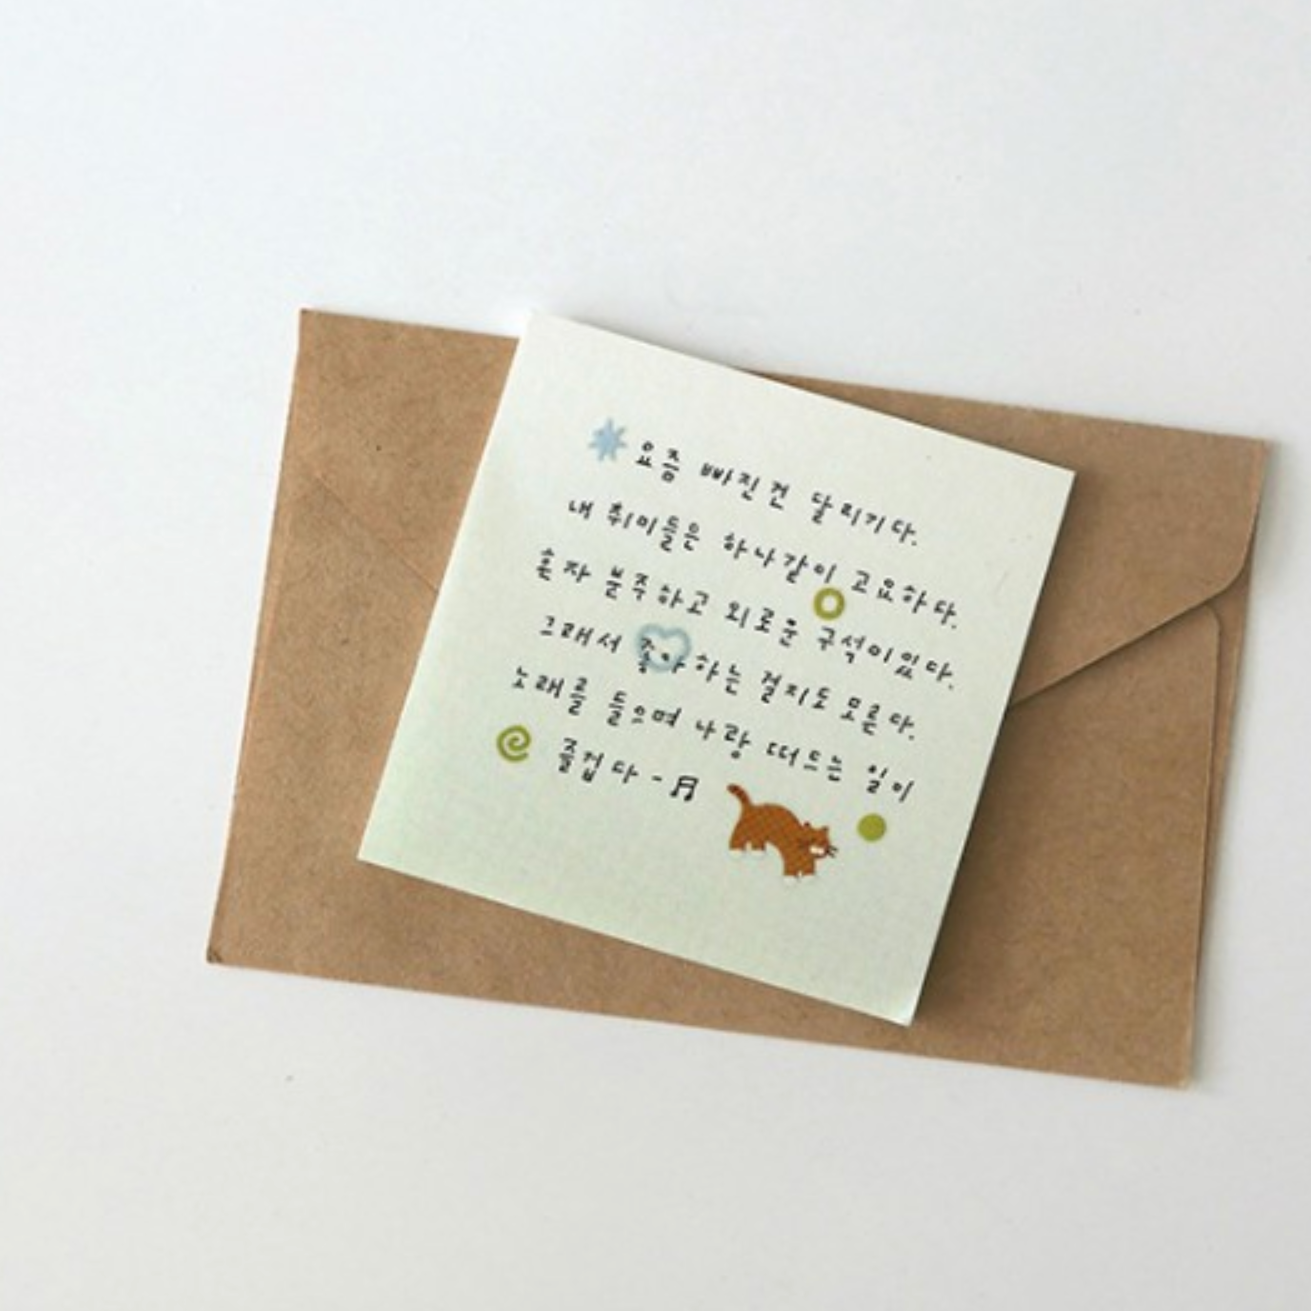 요즘 빠진건 달리기다.
내 취미들은 하나같이 고요하다.
혼자 분주하고 외로운 구석이있다.
그래서 좋아하는 걸지도 모른다.
노래를 들으며 나랑 떠드는 일이
즐겁다-♬